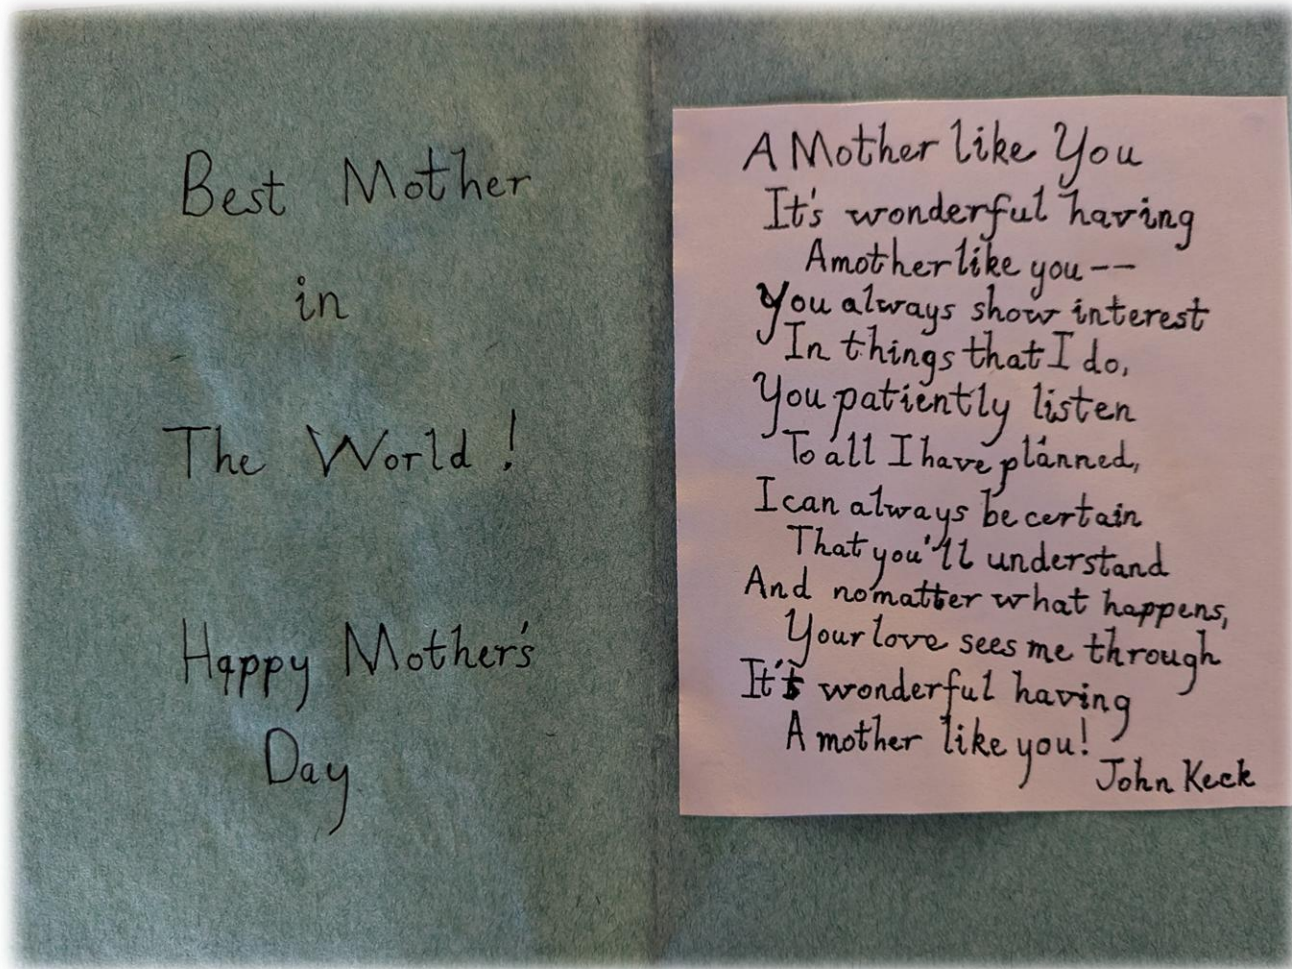 Best Mother
in
The World !
Happy Mother's
Day
A Mother like You
It's wonderful having
A mother like you--
You always show interest
In things that I do,
You patiently listen
To all I have planned,
I can always be certain
That you'll understand
And no matter what happens,
Your love sees me through
It's wonderful having
A mother like you!
John Keck